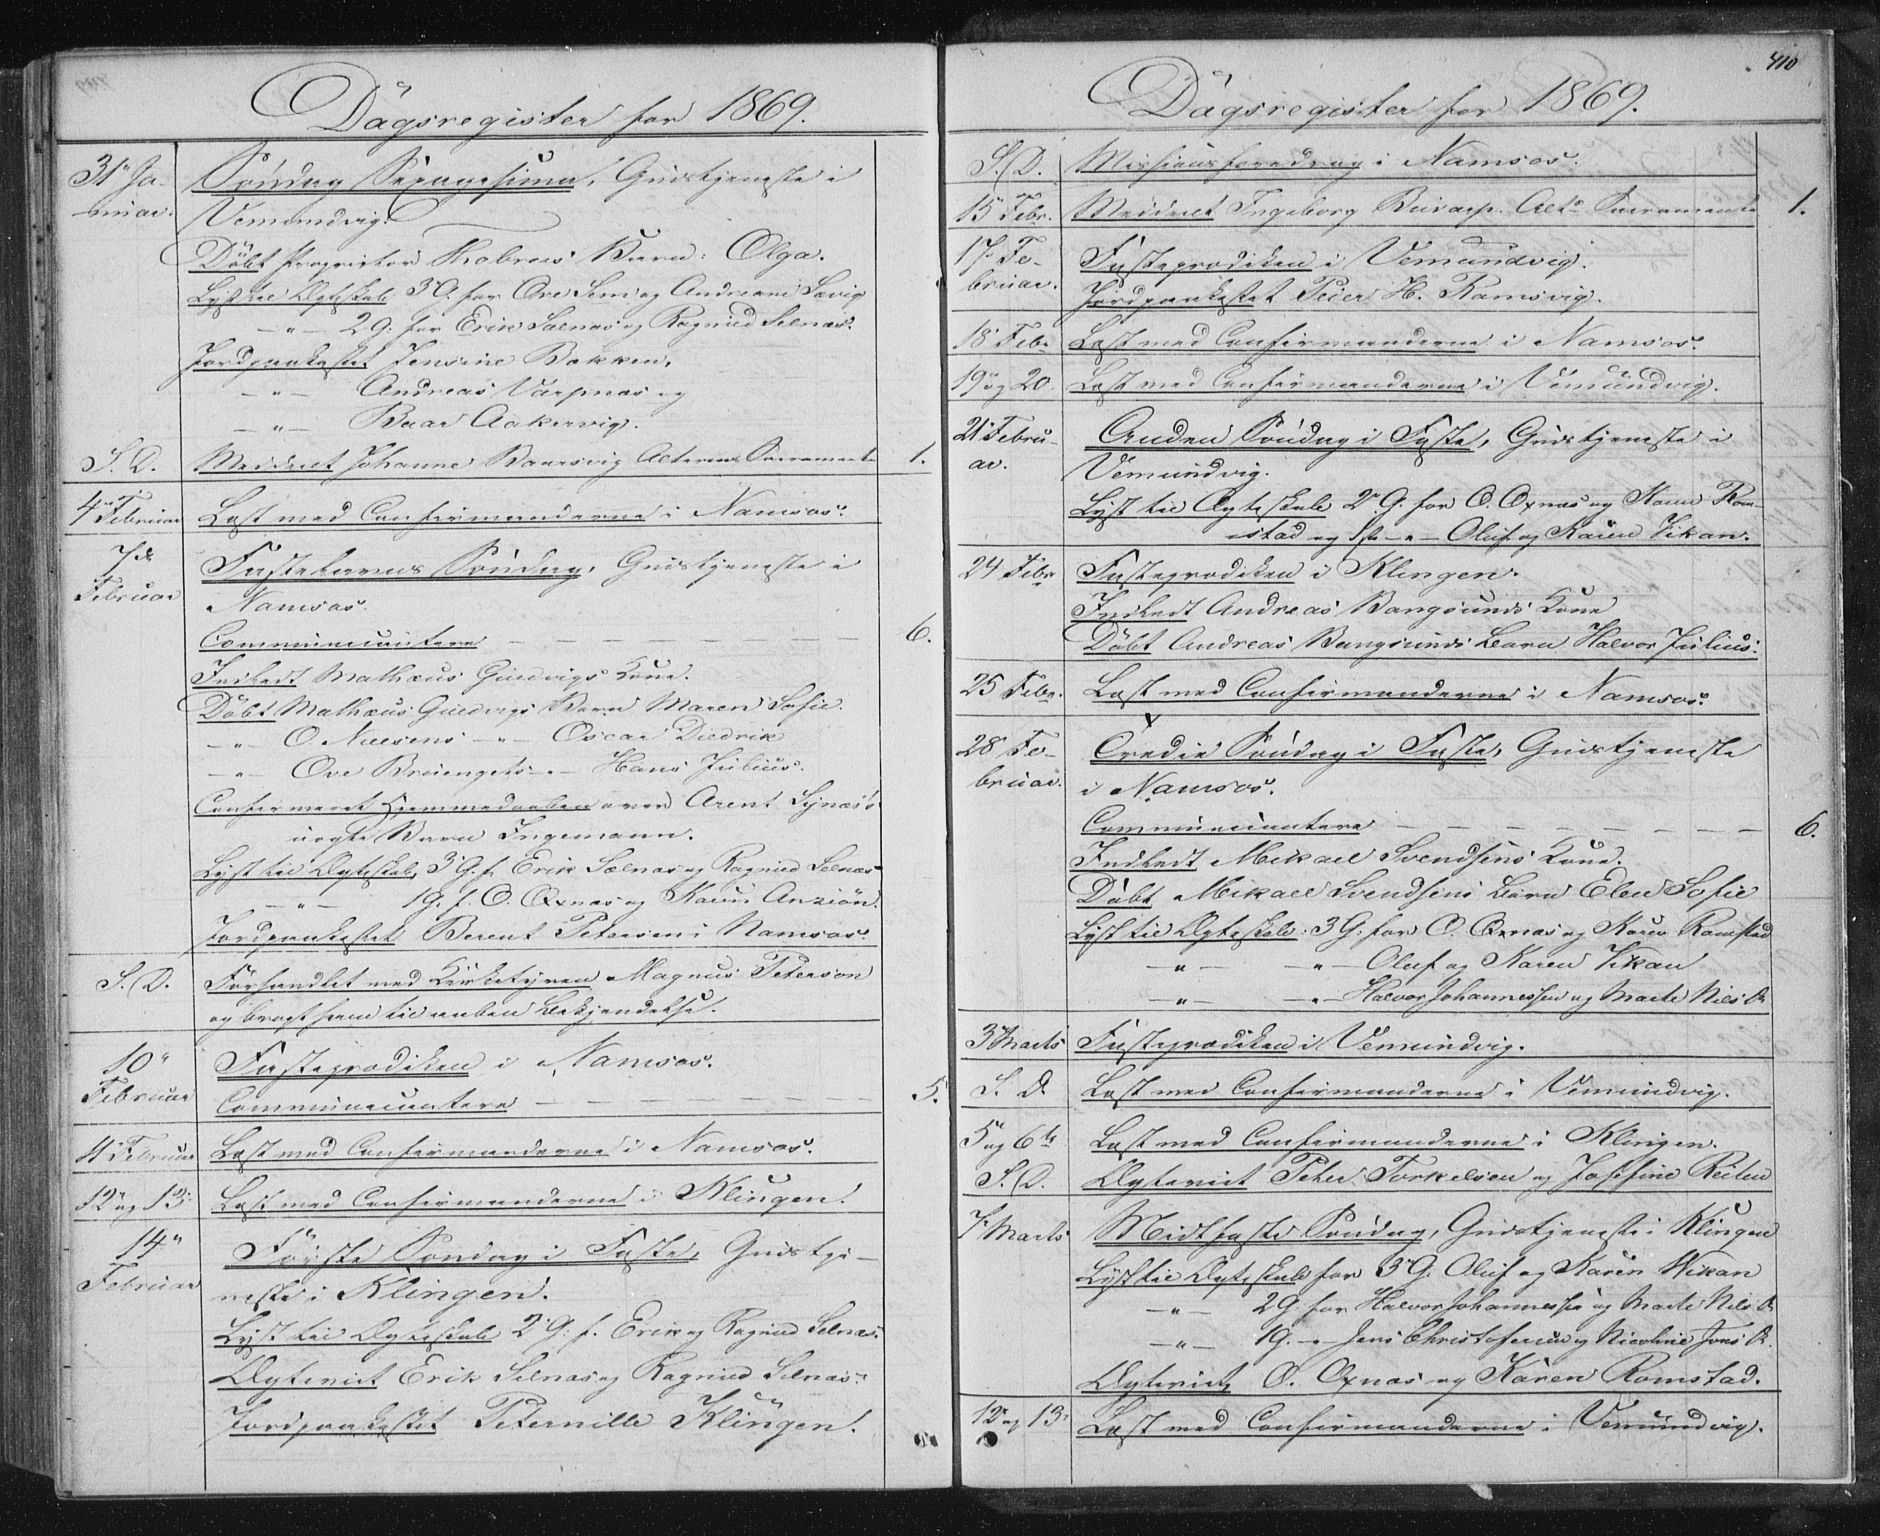 Dagsregister for 1869.
31te Ja-
nuar.
Söndag Sexagesima, Gudstjeneste i
Vemundvig.
Döbt Proprietær Barn: Olga.
Lyst til Ægteskab 3 G. for Ove Sem og Andreane Sævig
— " — 2 G: for Erik Selnæs og Ragnild Selnæs.
Jordpaakastet Jensine Bakken,
— " — Andreas Varpnæs og
— " — Baar Aakervig.
S. D. Meddeelt Johanne Alterens Sacramente 1.
4de Februar Læst med Confirmanderne i Namsos.
7de
Februar
Fastelavns Söndag, Gudstjeneste i
Namsos.
Communicantere — — — — — — 6.
Indledt Mathæus Kone.
Döbt Mathæus Barn Maren Sofie.
— " — O. Nielsens — " — Oscar Diedrik
— " — Ove — " — Hans Julius.
Confirmeret Hjemmedaaben over Arent
uægte Barn Ingemann.
Lyst til Ægteskab, 3 G. f. Erik Selnæs og Ragnild Selnæs
— " — 1 G. f. O. Oxnæs og Karen
Jordpaakastet Berent Petersen i Namsos.
S. D. Forhandlet med Kirketyven Magnus Peterson
og bragt ham til aaben Bekjendelse.
10de
Februar
Fasteprædiken i Namsos.
Communicantere — — — — — — 5.
11te Februar Læst med Confirmanderne i Namsos.
12te og 13de Læst med Confirmanderne i Klingen.
14de
Februar
Förste Söndag i Faste, Gudstje-
neste i Klingen.
Lyst til Ægteskab 2 G: f. Erik og Ragnild Selnæs.
Ægteviet Erik Selnæs og Ragnild Selnæs.
Jordpaakastet Peternille Klingen.
410
Dagsregister for 1869.
S. D. Missionsforedrag i Namsos.
15 Febr. Meddeelt Ingeborg Alts Sacramente 1.
17de Fe-
bruar.
Fasteprædiken i Vemundvig.
Jordpaakastet Peter H. Ramsvig.
18de Febr Læst med Confirmanderne i Namsos.
19de og 20. Læst med Confirmanderne i Vemundvig.
21de Febru-
ar.
Anden Söndag i Faste, Gudstjeneste i
Vemundvig.
Lyst til Ægteskab 2 G. for O. Oxnæs og Karen Rom-
stad og 1ste — " — Oluf og Karen Vikan.
24 Febr Fasteprædiken i Klingen.
Indledt Andreas Bangsunds Kone
Döbt Andreas Bangsunds Barn Halvor Julius.
25 Febr. Læst med Confirmanderne i Namsos.
28 Fe-
bruar.
Tredie Söndag i Faste, Gudstjeneste
i Namsos.
Communicantere — — — — — — 6.
Indledt Mikael Svendsens Kone.
Döbt Mikael Svendsens Barn Elen Sofie
Lyst til Ægteskab: 3 G. for O. Oxnæs og Karen Romstad
— " — — " — Oluf og Karen Vikan
— " — — " — Halvor Johannessen og Marte Nils D.
3 Marts Fasteprædiken i Vemundvig.
S. D. Læst med Confirmanderne i Vemundvig.
5te og 6te Læst med Confirmanderne i Klingen.
S. D. Ægteviet Peter Torkelsen og Josefine Reiten
7de Marts Midtfaste Söndag, Gudstjeneste i Klingen
Lyst til Ægteskab for 3 G. Oluf og Karen Wikan
— " — 2 G: for Halvor Johannessen og Marte Nils D.
— " — 1 G. — " — Jens Christofersen og Nicoline Jons D.
Ægteviet, O. Oxnæs og Karen Romstad.
12te og 13de Læst med Confirmanderne i Vemundvig.